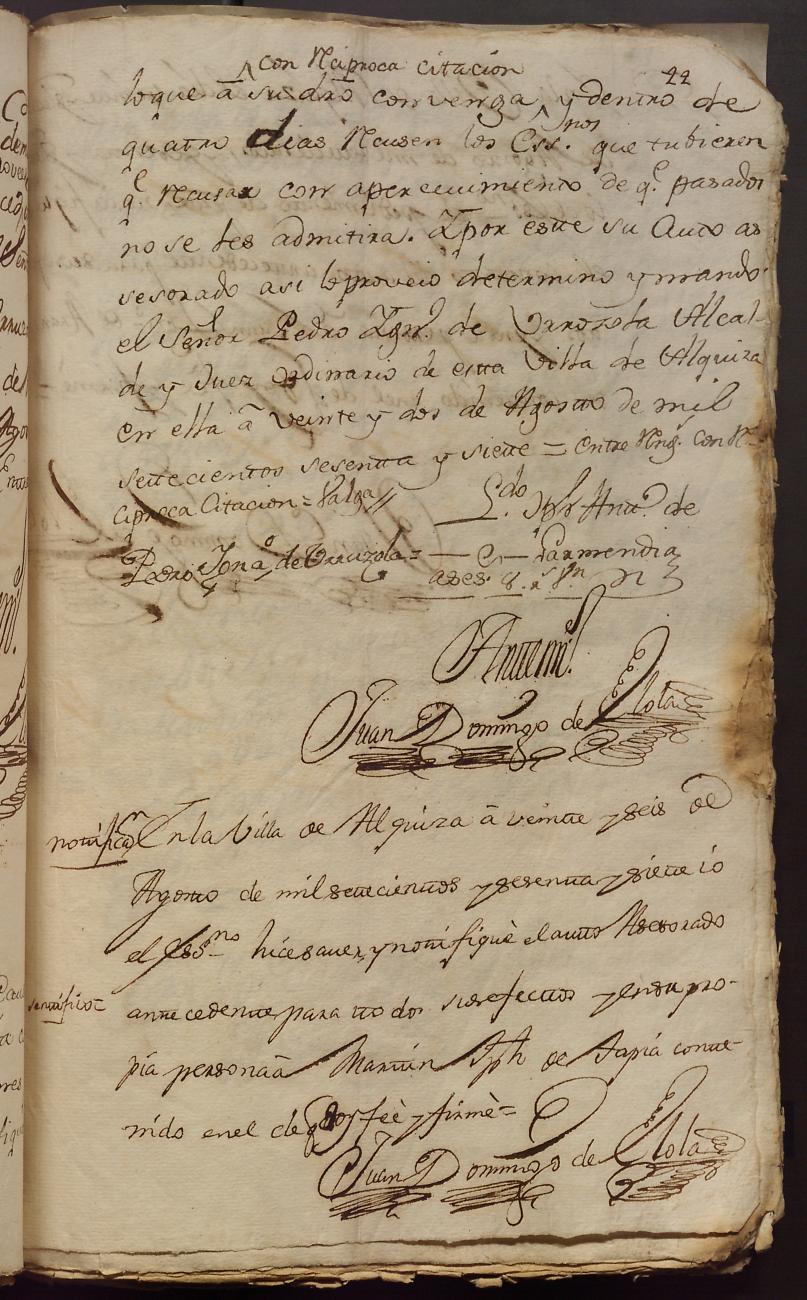 con reciproca citacion
44
loque â su dro convenga, y dentro de
quatro dias recusen los Essnos. que tubieren
q.e recusar con apercivimiento de q.e pasados
no se les admitira. Y por este su Auto as
sesorado asi lo proveio determino y mando
el Señor Pedro Ign.o de Urrozola Alcal-
de y Juez ordinario de esta Villa de Alquiza
en ella â veinte y dos de Agosto de mil
settecientos sesentta y siette = entre Reng.s con Re
ciproca Citacion = Valga //
L.do Jph Ant.o de
Pedro Ign.o de Urruzola =
Garmendia
Antemi
Juan Domingo de Elola
notific.on En la Villa de Alquiza â veinte y seis de
Agosto de mil settecienttos y sesentta y siette io
el Essno hice saver, y notifiquè el autto Asesorado
anttecedentte para ttodos sus efecttos y en su pro-
pia persona â Martin Jph de Tapia conte-
nido en el de q doy feè y firmè =
Juan Domingo de Elola